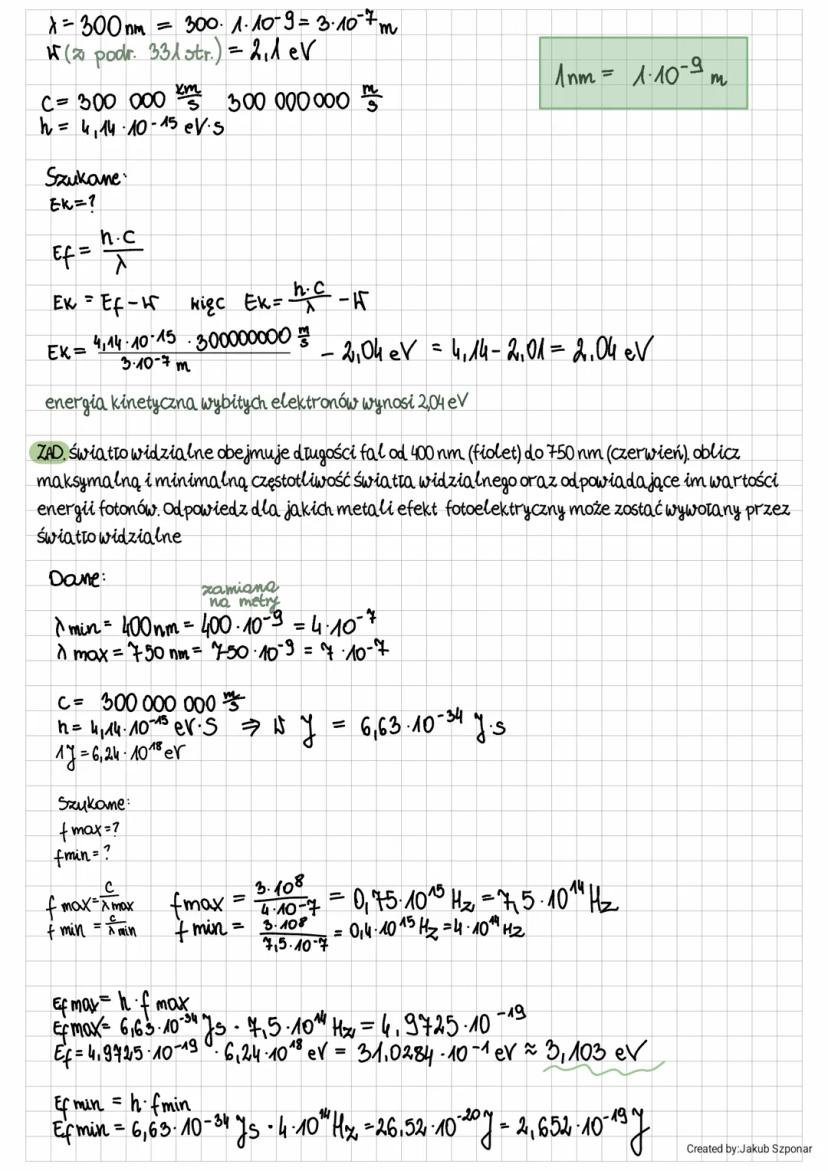 λ = 300 nm = 300 · 1 · 10⁻⁹ = 3 · 10⁻⁷ m
W (z podr. 331 str.) = 2,1 eV
1 nm = 1 · 10⁻⁹ m
c = 300 000 km/s 300 000 000 m/s
h = 4,14 · 10⁻¹⁵ eV·s
Szukane:
Ek = ?
Ef = h·c/λ
Ek = Ef - W więc Ek = h·c/λ - W
Ek = 4,14 · 10⁻¹⁵ · 300000000 m/s / 3·10⁻⁷ m - 2,04 eV = 4,14 - 2,01 = 2,04 eV
energia kinetyczna wybitych elektronów wynosi 2,04 eV
ZAD. światło widzialne obejmuje długości fal od 400 nm (fiolet) do 750 nm (czerwień). oblicz
maksymalną i minimalną częstotliwość światła widzialnego oraz odpowiadające im wartości
energii fotonów. Odpowiedz dla jakich metali efekt fotoelektryczny może zostać wywołany przez
światło widzialne
Dane:
zamiana
na metry
λ min = 400 nm = 400 · 10⁻⁹ = 4 · 10⁻⁷
λ max = 750 nm = 750 · 10⁻⁹ = 7 · 10⁻⁷
c = 300 000 000 m/s
h = 4,14 · 10⁻¹⁵ eV·S ⇒ W J = 6,63 · 10⁻³⁴ J·s
1J = 6,24 · 10¹⁸ eV
Szukane:
f max = ?
f min = ?
f max = c/λ max fmax = 3·10⁸/4·10⁻⁷ = 0,75 · 10¹⁵ Hz = 7,5 · 10¹⁴ Hz
f min = c/λ min f min = 3·10⁸/7,5·10⁻⁷ = 0,4 · 10¹⁵ Hz = 4 · 10¹⁴ Hz
Ef max = h · f max
Ef max = 6,63 · 10⁻³⁴ Js · 7,5 · 10¹⁴ Hz = 4,9725 · 10⁻¹⁹
Ef = 4,9725 · 10⁻¹⁹ · 6,24 · 10¹⁸ eV = 31,0284 · 10⁻¹ eV ≈ 3,103 eV
Ef min = h · fmin
Ef min = 6,63 · 10⁻³⁴ Js · 4 · 10¹⁴ Hz = 26,52 · 10⁻²⁰ J = 2,652 · 10⁻¹⁹ J
Created by:Jakub Szponar